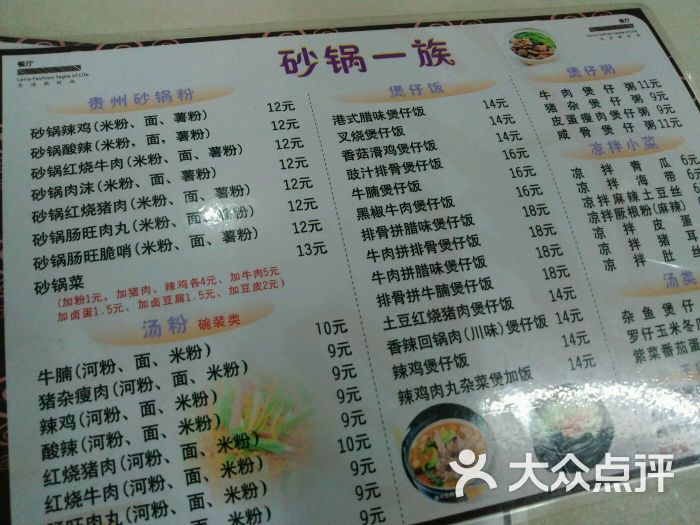 餐厅
Leria Fashion Taste of Life
砂锅一族
餐厅
Leria Fashion Taste of Life
贵州砂锅粉
砂锅辣鸡(米粉、面、薯粉) 12元
砂锅酸辣(米粉、面、薯粉) 12元
砂锅红烧牛肉(米粉、面、薯粉) 12元
砂锅肉沫(米粉、面、薯粉) 12元
砂锅红烧猪肉(米粉、面、薯粉) 12元
砂锅肠旺肉丸(米粉、面、薯粉) 12元
砂锅肠旺脆哨(米粉、面、薯粉) 12元
砂锅菜 13元
(加粉1元，加猪肉、辣鸡各4元、加牛肉5元
加卤蛋1.5元、加卤豆腐1.5元、加豆皮2元)
汤粉 碗装类
牛腩(河粉、面、米粉) 10元
猪杂瘦肉(河粉、面、米粉) 9元
辣鸡(河粉、面、米粉) 9元
酸辣(河粉、面、米粉) 9元
红烧猪肉(河粉、面、米粉) 9元
红烧牛肉(河粉、面、米粉) 10元
肠旺肉丸(河粉、面、米粉) 9元
9元
煲仔饭
港式腊味煲仔饭 14元
叉烧煲仔饭 14元
香菇滑鸡煲仔饭 14元
豉汁排骨煲仔饭 16元
牛腩煲仔饭 16元
黑椒牛肉煲仔饭 16元
排骨拼腊味煲仔饭 18元
牛肉拼排骨煲仔饭 18元
牛肉拼腊味煲仔饭 18元
排骨拼牛腩煲仔饭 18元
土豆红烧猪肉煲仔饭 14元
香辣回锅肉(川味)煲仔饭 14元
辣鸡煲仔饭 14元
辣鸡肉丸杂菜煲加饭 14元
煲仔粥
牛肉煲仔粥 11元
猪杂煲仔粥 9元
皮蛋瘦肉煲仔粥 9元
咸骨煲仔粥 11元
凉拌小菜
凉拌青瓜 6元
凉拌海带 6元
凉拌麻辣土豆丝
凉拌厥根粉(麻辣)
凉拌皮蛋
凉拌猪耳
凉拌肚丝
汤类
杂鱼煲仔
罗仔玉米冬
紫菜番茄蛋
大众点评